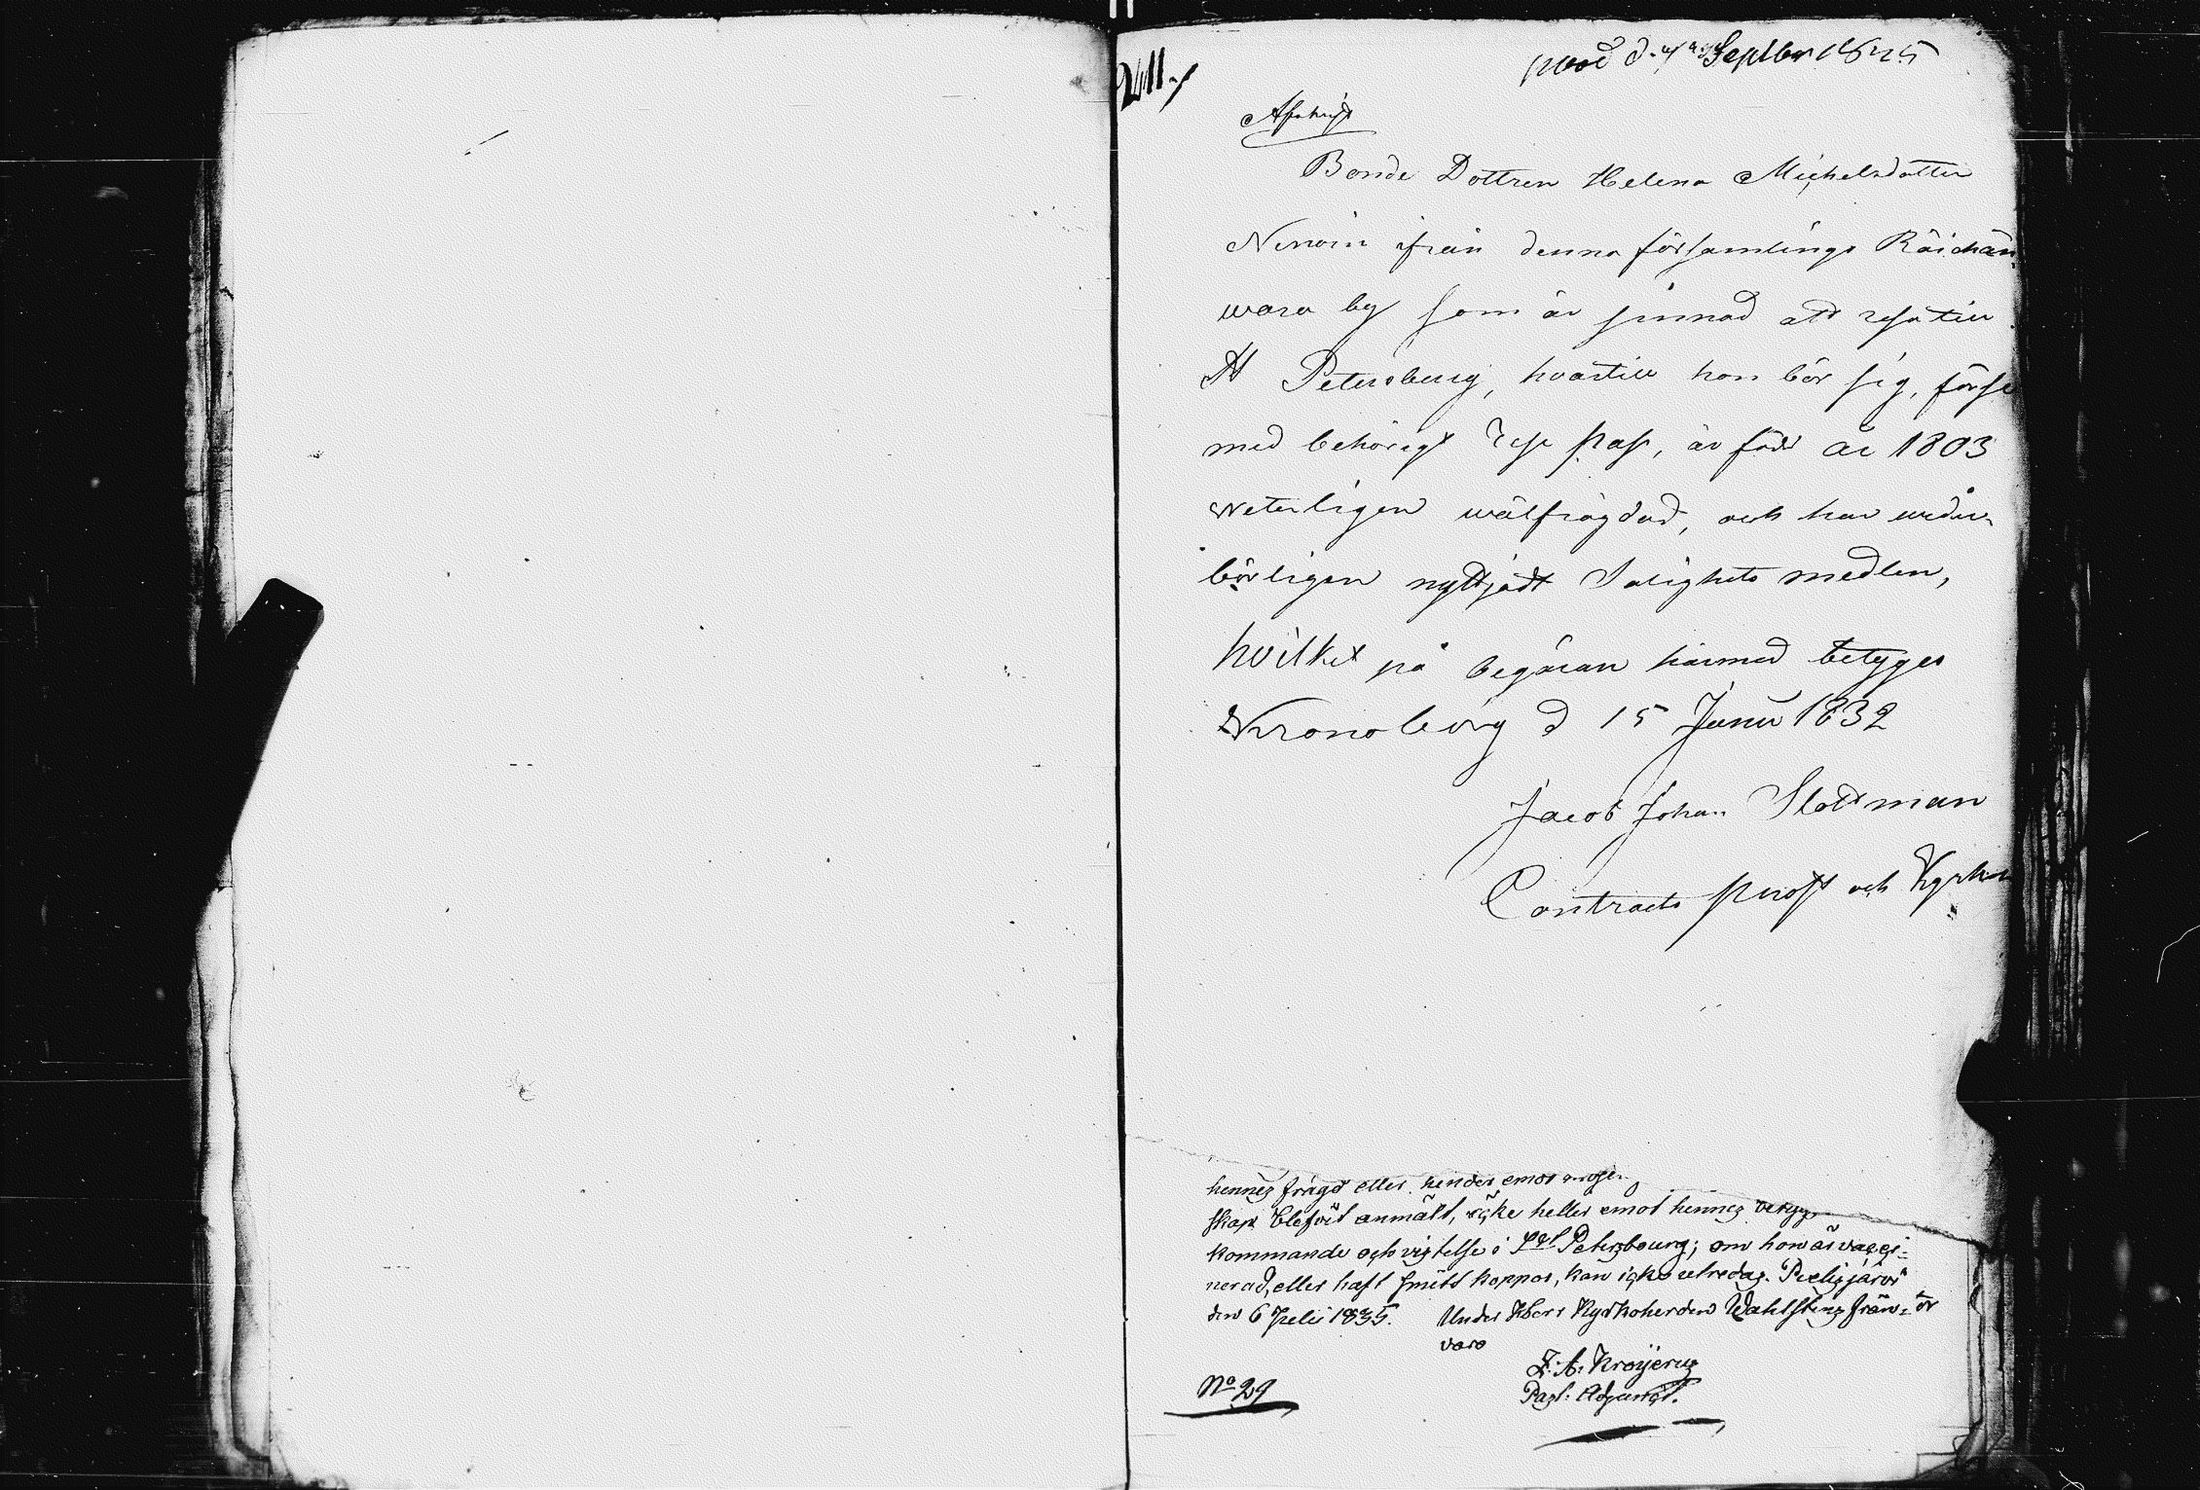 241.
prod d. 4 Septbr 1845
Afskrift
Bonde Dottren Helena Michelsdotter
Nenoin ifrån denna församlings Räichän-
wara by som är sinnad att resa till
St Petersburg, hvartill hon bör sig, förse
med behörigt Rese pass, är född år 1803
Veterligen wälfrägdad, och har
börligen nyttjadt Salighets medlen,
hvilket på begäran härmed betyges
Kronoborg d 15 Junii 1832
Jacob Johan Slottman
Contracts prost och Kyrko
hennes frägd eller hinder emot
skap blefvit anmält, icke heller emot hennes
kommande och vistelse i St Petersbourg; om hon är vacci-
nerad, eller haft smått koppor, kan icke utredas. Pielisjärvi
den 6 Julii 1835. Under Herr Kyrkoherden Wahlstens från-
varo
Z. A. Krogerus
Past: Adjunct.
No 29